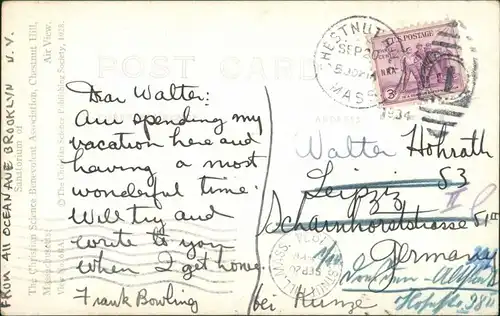 FROM 411 OCEAN AVE BROOKLYN N.Y.
Air View.
Sanatorium of
The Christian Science Benevolent Association, Chestnut Hill,
© The Christian Science Publishing Society, 1928.
POST CARD
Dear Walter:
Am spending my
vacation here and
having a most
wonderful time.
Will try and
write to you
when I get home.
Frank Bowling
CHESTNUT
SEP 20
5 30 PM
MASS.
1934
U.S. POSTAGE
3
Walter Hohrath
Leipzig S3
Scharnhorststrasse 51
Germany
bei Kunze
Dresden-Altstadt